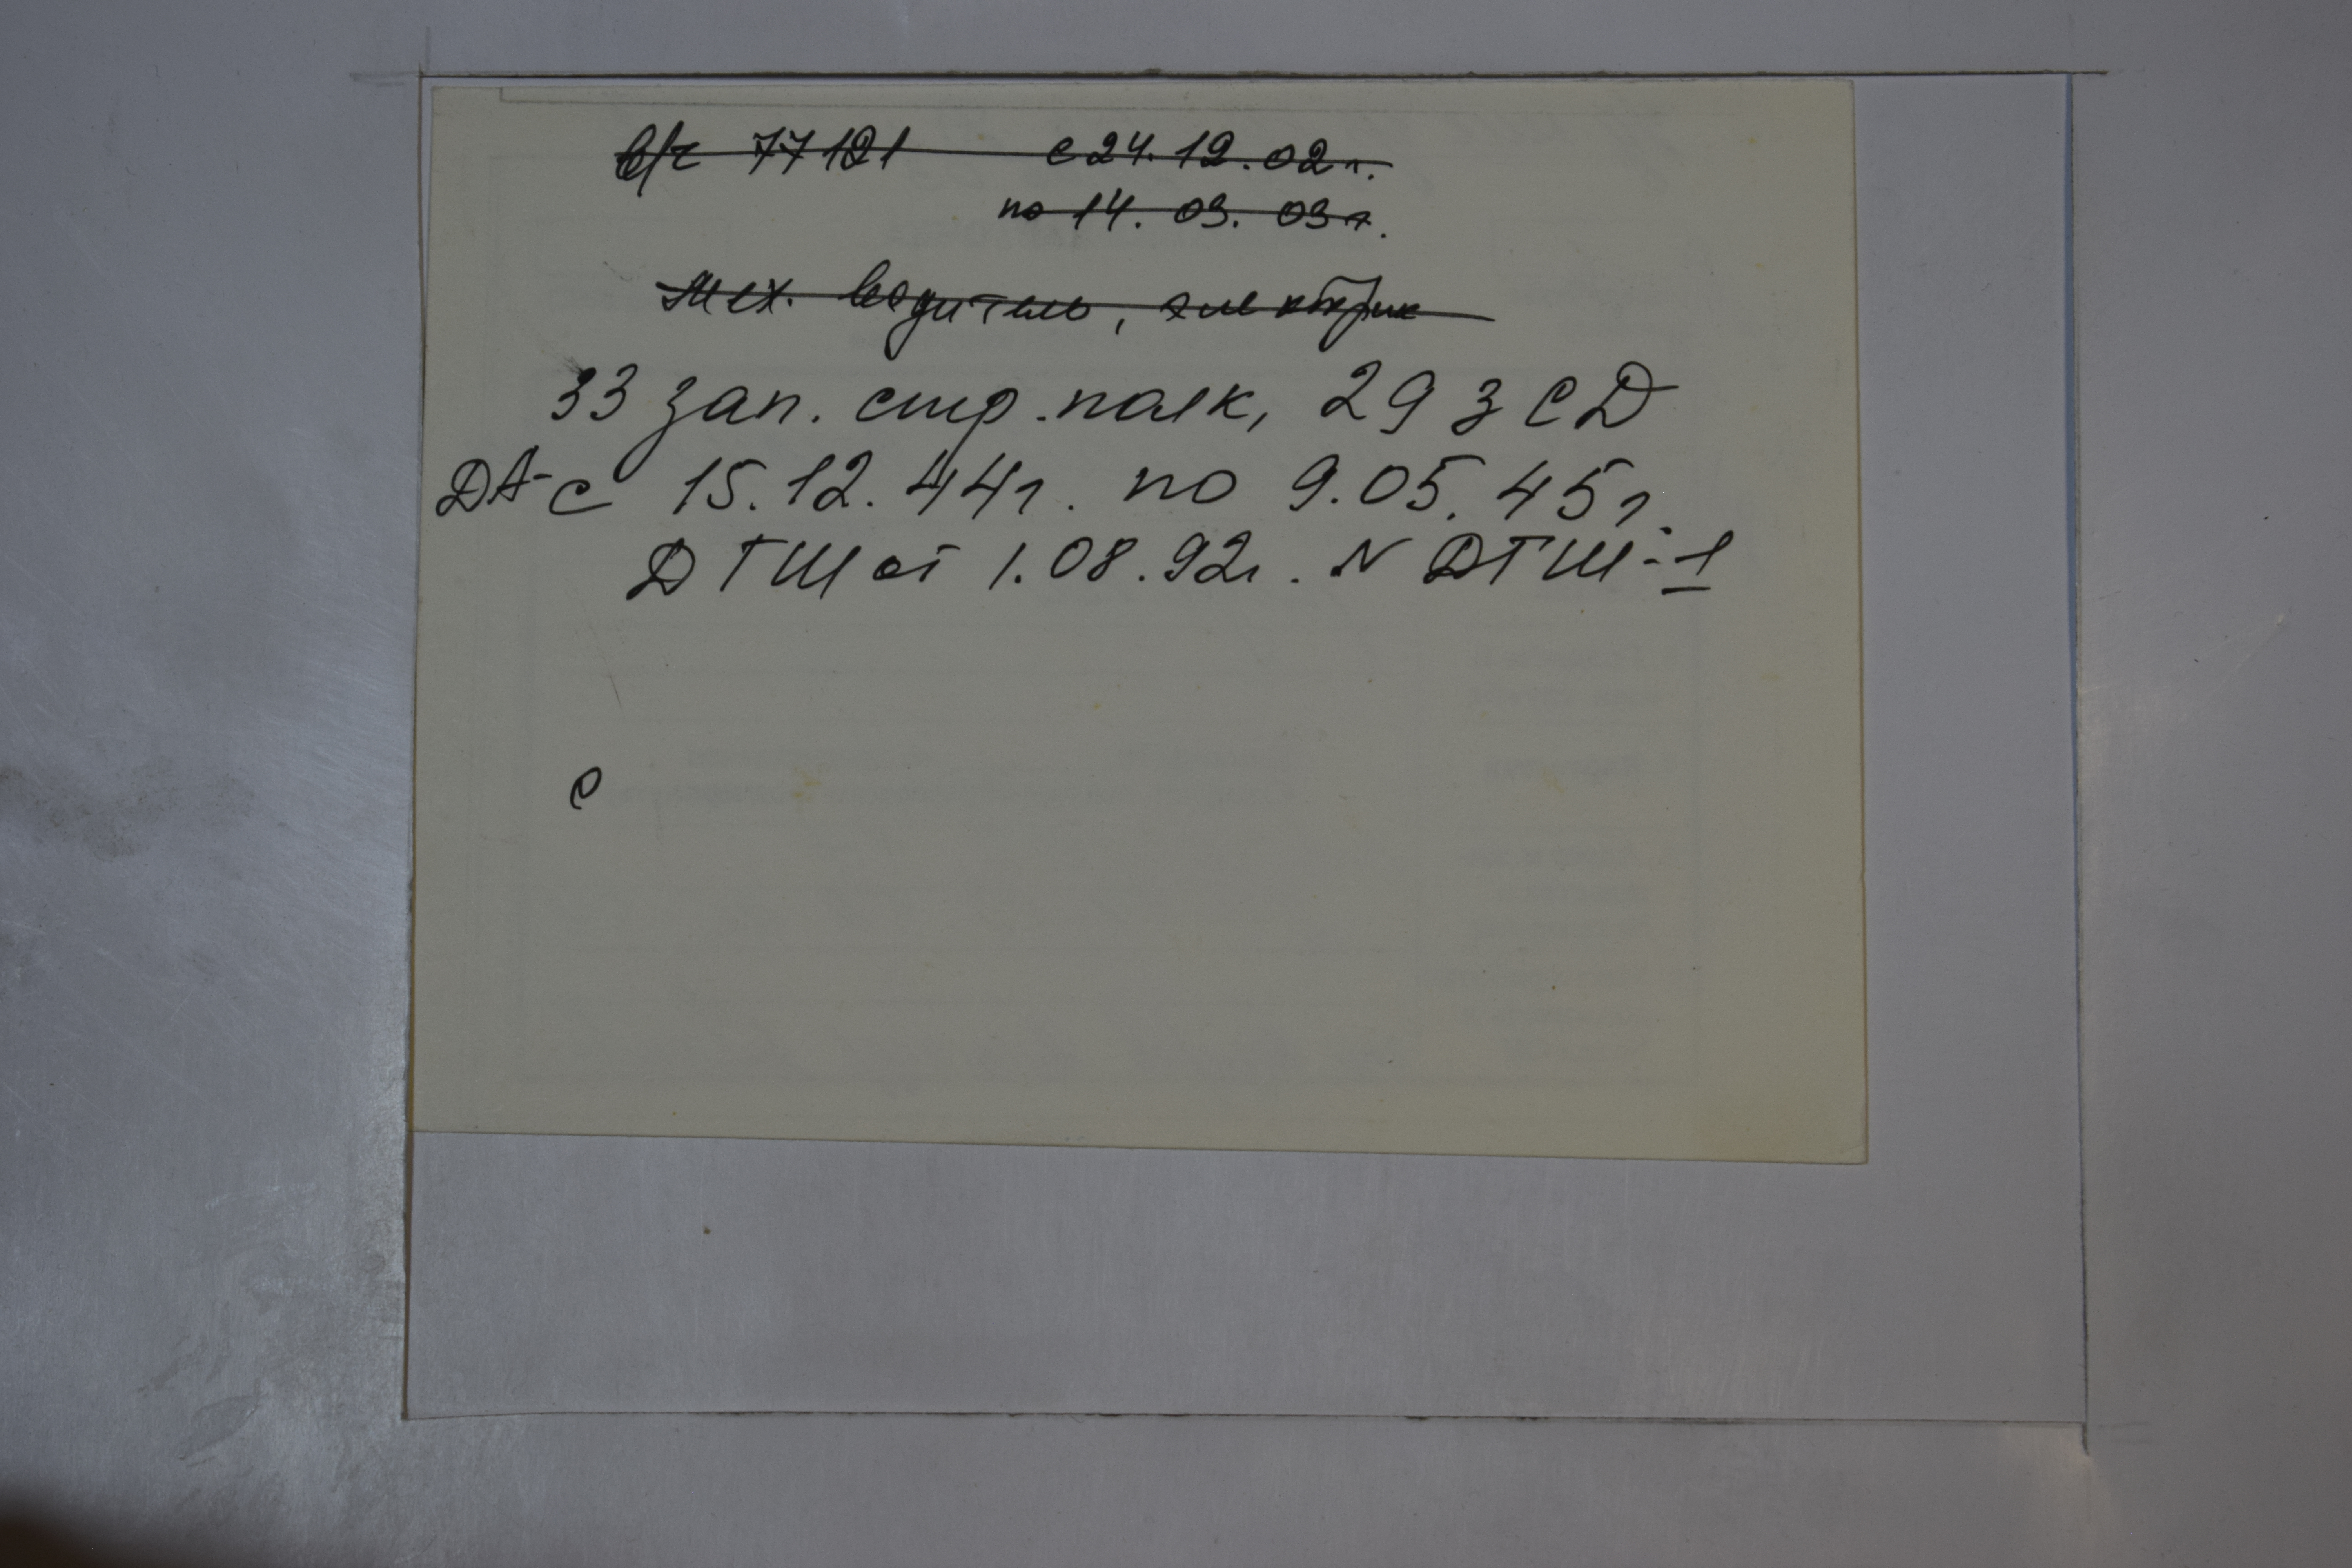 в/ч 77121 с 24.12.02 г.
по 14. 03. 03 г.
мех. водитель, электрик
33 зап. стр. полк, 29 з СД
ДА-с 15.12.44г. по 9.05.45г.
ДГШ от 1.08.92г. N ДГШ-1
с